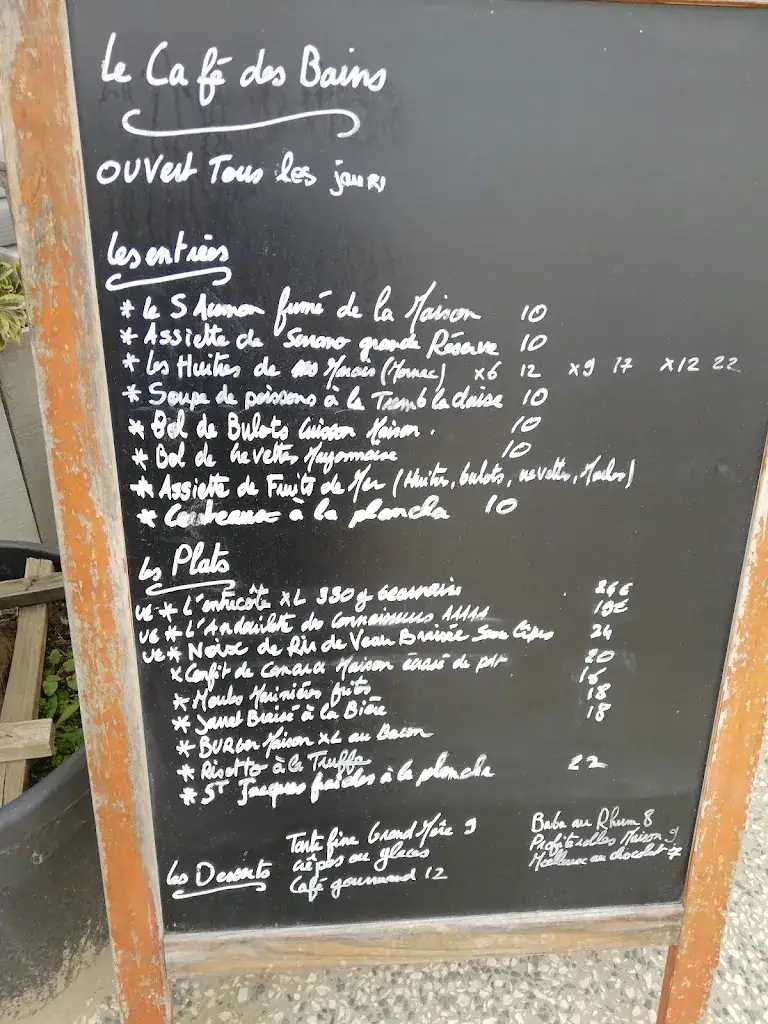 Le Café des Bains
OUVert Tous les jours
Les entrées
* Le SAumon fumé de la Maison 10
* Assiette de Serrano grande Réserve 10
* Les Huitres de Marais (Mornac) x6 12 x9 17 x12 22
* Soupe de poissons à la Trembladaise 10
* Bol de Bulots Cuisson Maison. 10
* Bol de Crevettes Mayonnaise 10
* Assiette de Fruits de Mer (Huitres, bulots, crevettes, Moules)
* Couteaux à la plancha 10
Les Plats
* L'entrecôte XL 350g Bearnaise 24€
* L'Andouillette des Connaisseurs AAAAA 19€
* Noix de Ris de Veau Braisée Sauce Cèpes 24
* Confit de Canard Maison écrasé de pdt 20
* Moules Marinières frites 16
* Jarret Braisé à la Bière 18
* BURGer Maison XL au Bacon 18
* Risotto à la Truffe
* ST Jacques fraîches à la plancha 22
Les Desserts
Tarte fine Grand Mère 9
Crêpes ou glaces
Café gourmand 12
Baba au Rhum 8
Profiterolles Maison 9
Moelleux au chocolat 7